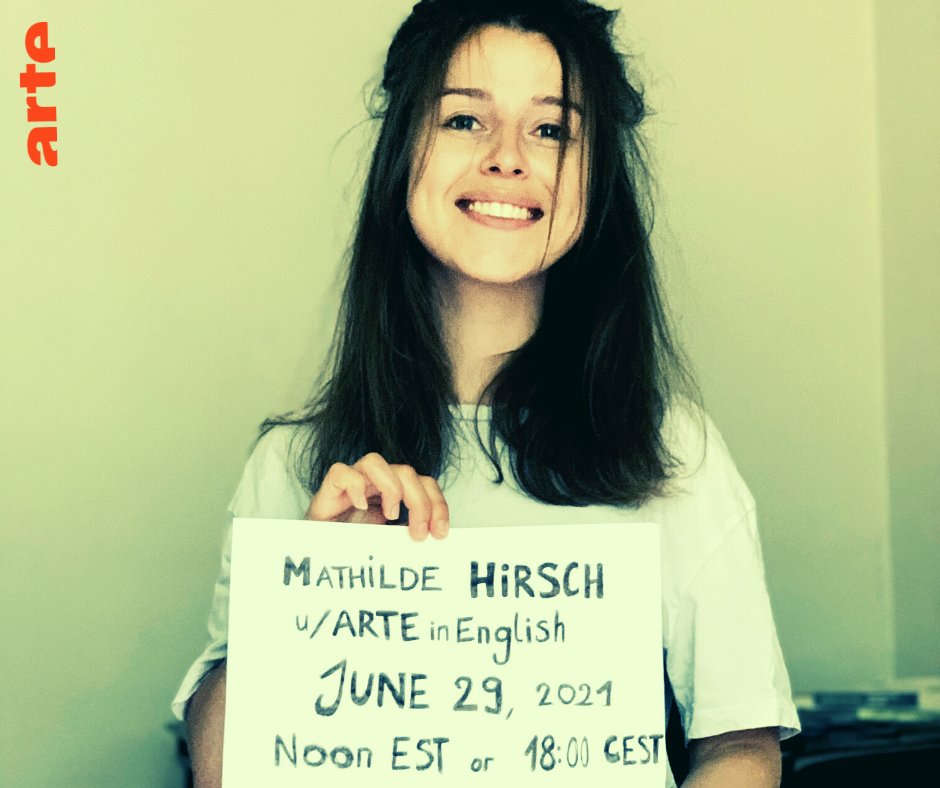 arte
MATHiLDE HiRSCH
u/ARTE in English
JUNE 29, 2021
Noon EST or 18:00 CEST